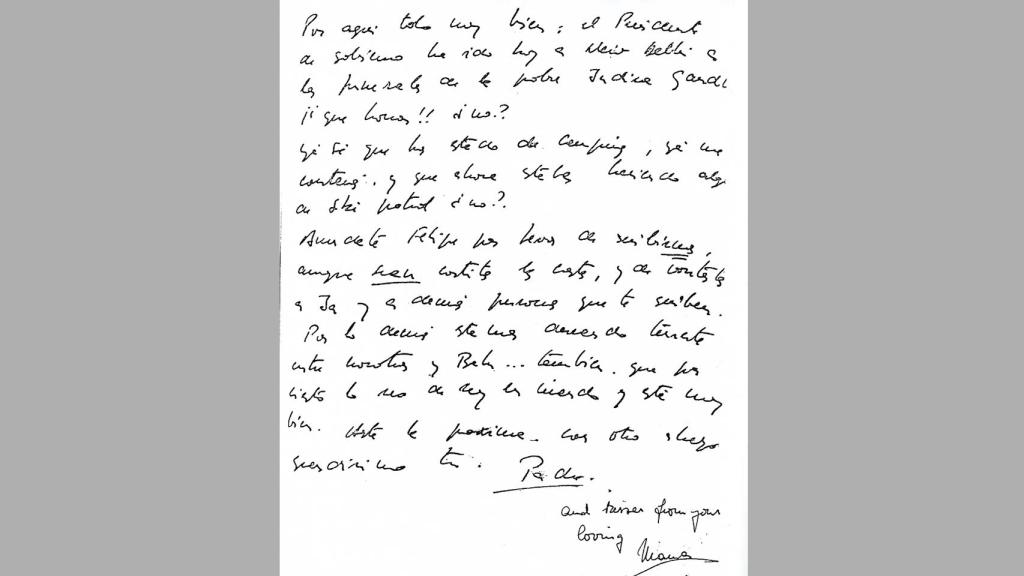 Por aqui todo muy bien; el Presidente
de gobierno ha ido hoy a New Delhi a
los funerales de la pobre Indira Gandi
¡¡que horror!! ¿no?
Ya sé que has stado de camping, ya me
contarás, y que ahora stabas haciendo algo
de Ski patrol ¿no?.
Acuerdate Felipe por favor de scribirnos,
aunque sean cortitas las cartas, y de contestar
a Ia y a demás personas que te scriben.
Por lo demás stamos deseando tenerte
entre nosotros y Bea... tambien. que por
cierto lo mio de hoy es miedo y está muy
bien. Hasta la proxima con otro abrazo
grandisimo tu. Padre.
and kisses from your
loving Mama